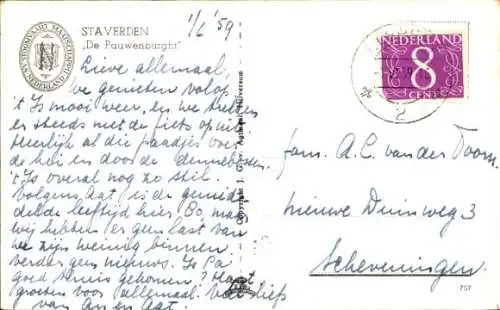 STAVERDEN
„De Pauwenburght"
1/6 '59
Lieve allemaal,
we genieten volop
't Is mooi weer, en we trekken
er steeds met de fiets op uit
Heerlijk al die paadjes over
de hei en door de dennebossen.
't Is overal nog zo stil.
Volgens Aat, is de gemid-
delde leeftijd hier 80, maar
wij hebben er geen last van
we zijn weinig binnen
verder geen nieuws. Is Pa
goed thuis gekomen? Hartel
groeten voor allemaal. Veel liefs
van An en Aat.
NEDERLAND
8
CENT
2
Fam. A. C. van der Toorn
nieuwe Duinweg 3
Scheveningen.
757